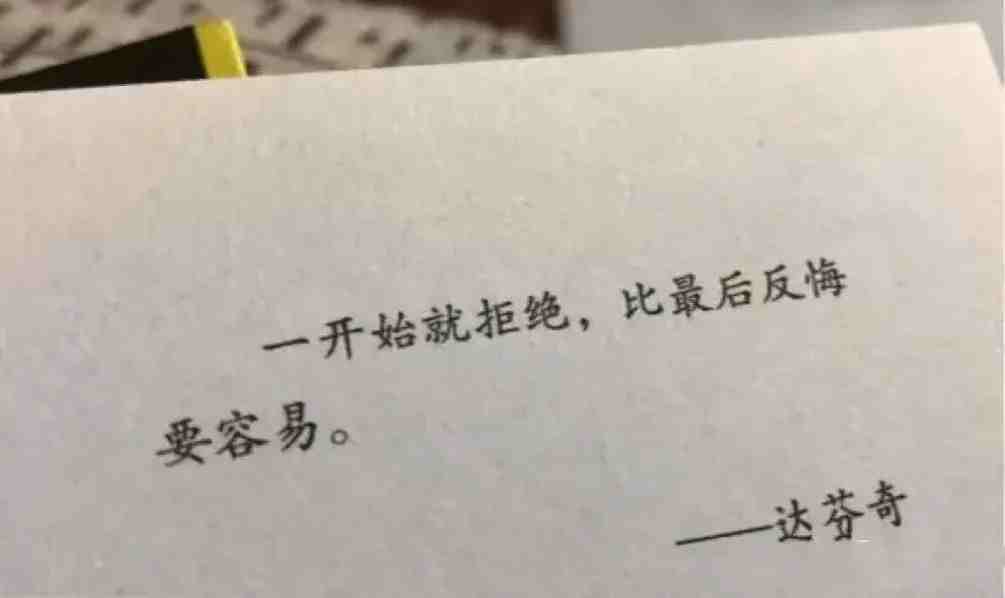 一开始就拒绝，比最后反悔
要容易。
——达芬奇